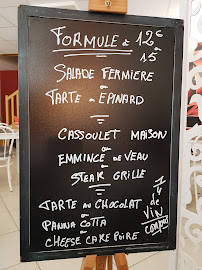 FORMULE à 12€
15
SALADE FERMIERE
ou
TARTE ou EPINARD
CASSOULET MAISON
ou
EMMINCE DE VEAU
ou
STEAK GRILLE
TARTE AU CHOCOLAT
ou
PANNA COTTA
ou
CHEESE CAKE POIRE
1/4 de VIN compris